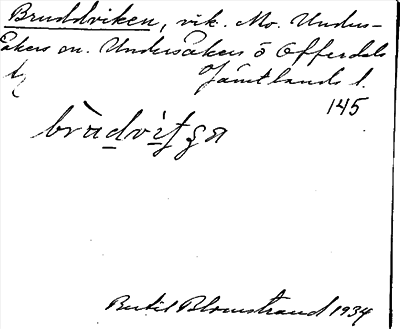 Bruddviken, vik. Mo. Unders-
åkers sn. Undersåkers o Offerdals
tg Jämtlands l.
145
Bertil Blomstrand 1934